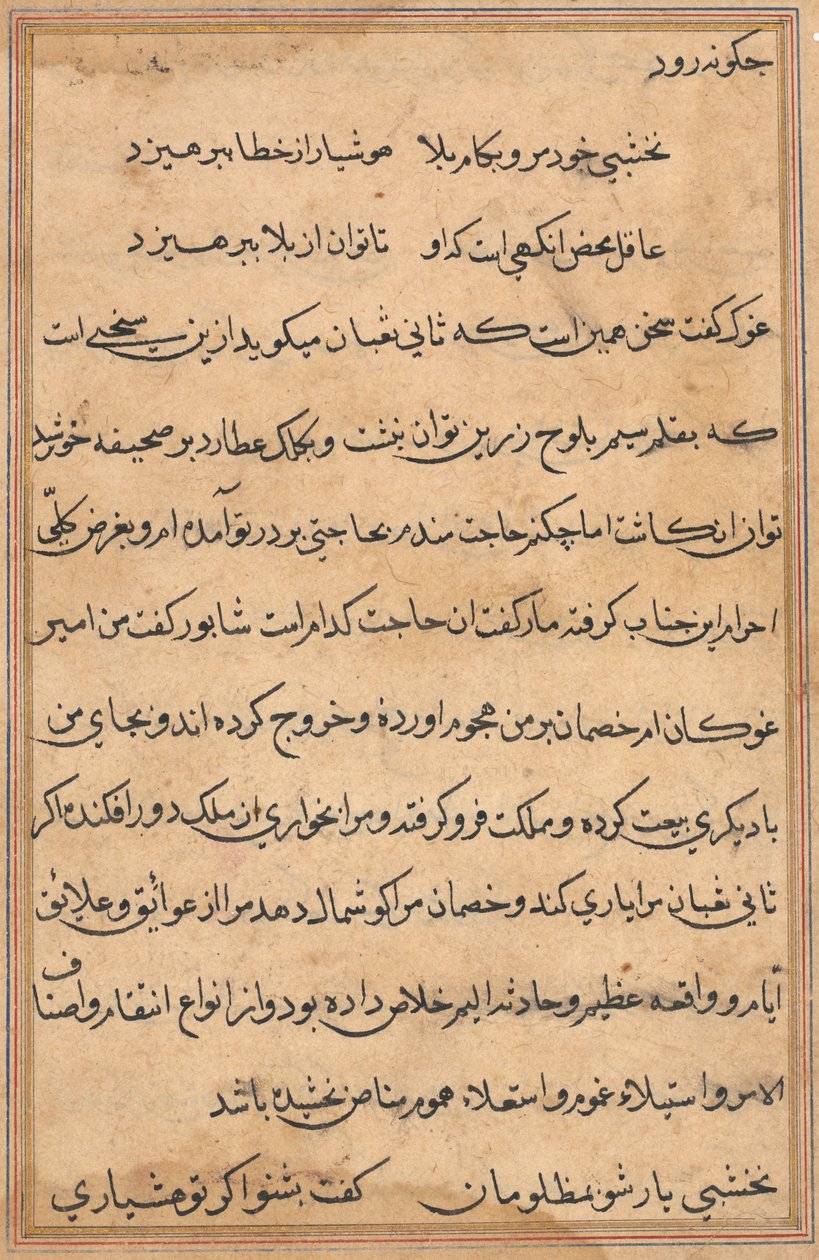 جکونه رود
نخشبی خود مرو بکام بلا هوشیار از خطا بپرهیزد
عاقل محض انکهی است که او تا توان از بلا بپرهیزد
غوک کفت سخن همین است که ثانی ثعبان میکوید ازین سخنی است
که بقلم سیم بلوح زرین توان بنشت و بکلک عطارد بر صحیفه خورشید
توان انکاشت اما چکنم حاجت مندم بحاجتی بر در تو آمده ام و بغرض کلّی
احرام این جناب کرفته مار کفت ان حاجت کدام است شابور کفت من امیر
غوکان ام خصمان بر من هجوم اورده و خروج کرده اند و بجای من
با دیکری بیعت کرده و مملکت فرو کرفته و مرا بخواری از ملک دور افکنده اکر
ثانی ثعبان مرا یاری کند و خصمان مرا کوشمال دهد مرا از عوائق و علایق
ایّام و واقعه عظیم و حادثه الیم خلاص داده بود و از انواع انتقام و اصناف
الامر و استیلاء غموم و استعلاء هموم مناص بخشیده باشد
نخشبی یار شو بمظلومان کفت بشنو اکر تو هشیاری